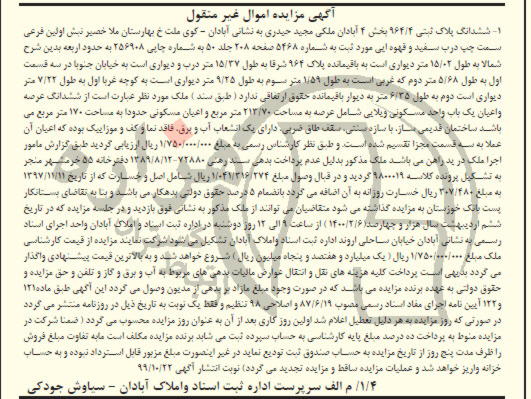 آگهی مزایده اموال غیر منقول
۱- ششدانگ پلاک ثبتی ۹۶۴/۴ بخش ۴ آبادان ملکی مجید حیدری به نشانی آبادان - کوی ملت خ بهارستان ملا خضیر نبش اولین فرعی
سمت چپ درب سفید و قهوه ایی مورد ثبت به شماره ۵۴۶۸ صفحه ۲۰۸ جلد ۵۰ به شماره چاپی ۲۵۶۹۰۸ به حدود اربعه بدین شرح
شمالا به طول ۱۵/۰۲ متر دیواری است به باقیمانده پلاک ۹۶۴ شرقا به طول ۱۵/۳۷ متر درب و دیواری است به خیابان جنوبا در سه قسمت
اول به طول ۵/۶۸ متر دوم که غربی است به طول ۱/۵۹ متر سوم به طول ۹/۲۵ متر دیواری است به کوچه غربا اول به طول ۷/۲۲ متر
دیواری است دوم به طول ۶/۳۵ متر به دیوار باقیمانده حقوق ارتفاقی ندارد ( طبق سند ) ملک مورد نظر عبارت است از ششدانگ عرصه
واعیان یک باب واحد مسکونی ویلایی شامل عرصه به مساحت ۲۱۳/۷۰ متر مربع و اعیان مسکونی حدودا به مساحت ۱۷۰ متر مربع می
باشد ساختمان قدیمی ساز، با سازه سنتی، سقف طاق ضربی، دارای یک انشعاب آب و برق، فاقد نما و کف و موزاییک بوده که اعیان آن
عملا به سه قسمت مجزا تقسیم شده است. و طبق نظر کارشناس رسمی به مبلغ ۱/۷۵۰/۰۰۰/۰۰۰ ریال ارزیابی گردید طبق گزارش مامور
اجرا ملک در ید راهن می باشد ملک مذکور بدلیل عدم پرداخت بدهی سند رهنی ۷۲۸۸۰-۱۳۸۹/۸/۱۳ دفترخانه ۵۵ خرمشهر منجر
به تشکیل پرونده کلاسه ۹۸۰۰۰۱۹ گردید و در قبال وصول مبلغ ۱/۰۴۱/۳۱۶/۲۷۴ ریال شامل اصل و خسارت که از تاریخ ۱۳۹۷/۱۱/۱۱
به مبلغ ۳۰۷/۴۸۰ ریال خسارت روزانه به آن اضافه می گردد بانضمام ۵ درصد حقوق دولتی بدهکار می باشد و بنا به تقاضای بستانکار
پست بانک خوزستان به مزایده گذاشته می شود متقاضیان می توانند از ملک مذکور به نشانی فوق بازدید و در جلسه مزایده که در تاریخ
ششم اردیبهشت سال هزار و چهارصد(۱۴۰۰/۲/۶) از ساعت ۹ الی ۱۲ روز دوشنبه در اداره ثبت اسناد و املاک آبادان واحد اجرای اسناد
رسمی به نشانی آبادان خیابان ساحلی اروند اداره ثبت اسناد واملاک آبادان تشکیل می شود شرکت نمایند مزایده از قیمت کارشناسی
ملک مبلغ ۱/۷۵۰/۰۰۰/۰۰۰ ریال ( یک میلیارد و هفتصد و پنجاه میلیون ریال ) شروع خواهد شد و به بالاترین قیمت پیشنهادی واگذار
می گردد بدیهی است پرداخت کلیه هزینه های نقل و انتقال عوارض مالیات بدهی های مربوط به آب و برق و گاز و تلفن و حق مزایده و
حقوق دولتی به عهده برنده مزایده می باشد که در صورت وجود مبلغ مازاد بر بدهی از مدیون وصول می گردد این آگهی طبق ماده۱۲۱
و ۱۲۲ آیین نامه اجرای مفاد اسناد رسمی مصوب ۸۷/۶/۱۹ و اصلاحی ۹۸ تنظیم و فقط یک نوبت به تاریخ ذیل در روزنامه منتشر می گردد
در صورتی که روز مزایده به هر دلیل تعطیل اعلام شد اولین روز کاری بعد از آن به عنوان روز مزایده محسوب می گردد ( ضمنا شرکت در
مزایده منوط به پرداخت ده درصد مبلغ پایه کارشناسی به حساب سپرده ثبت می شابد برنده مزایده مکلف است مابه تفاوت مبلغ فروش
را ظرف مدت پنج روز از تاریخ مزایده به حساب صندوق ثبت تودیع نماید در غیر اینصورت مبلغ مزبور قابل استرداد نبوده و به حساب
خزانه واریز خواهد شد و عملیات مزایده ساقط و مزایده تجدید می گردد) نوبت انتشار آگهی ۹۹/۱۰/۲۲
۱/۴ م الف سرپرست اداره ثبت اسناد واملاک آبادان - سیاوش جودکی